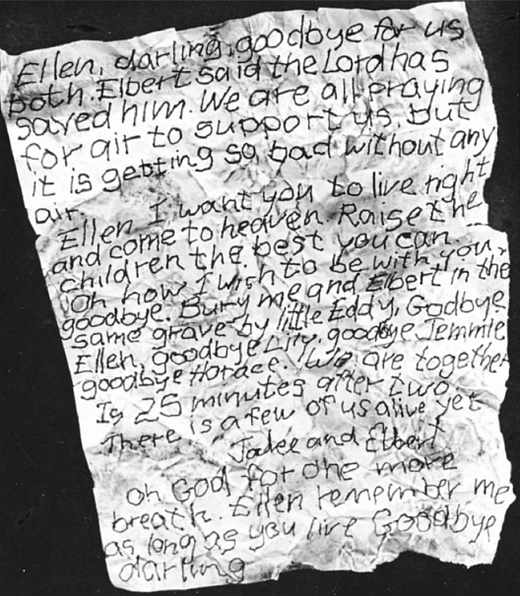 Ellen, darling, goodbye for us
both. Elbert said the Lord has
saved him. We are all praying
for air to support us. But
it is getting so bad without any
air.
Ellen I want you to live right
and come to heaven. Raise the
children the best you can.
Oh how I wish to be with you,
goodbye. Bury me and Elbert in the
same grave by little Eddy, Godbye
Ellen, goodbye Lily, goodbye Jemmie
goodbye Horace. We are together
Is 25 minutes after two
There is a few of us alive yet
Jake and Elbert
oh God for one more
breath. Ellen remember me
as long as you live Goodbye
darling